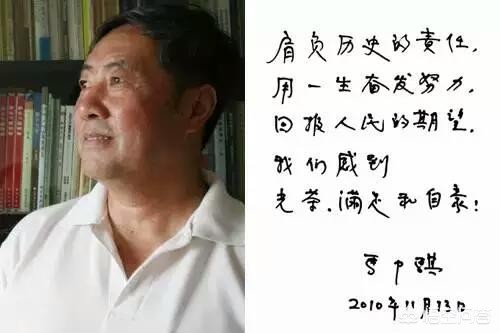 肩负历史的责任,
用一生奋发努力,
回报人民的期望.
我们感到
光荣.满足和自豪!
2010年11月13日